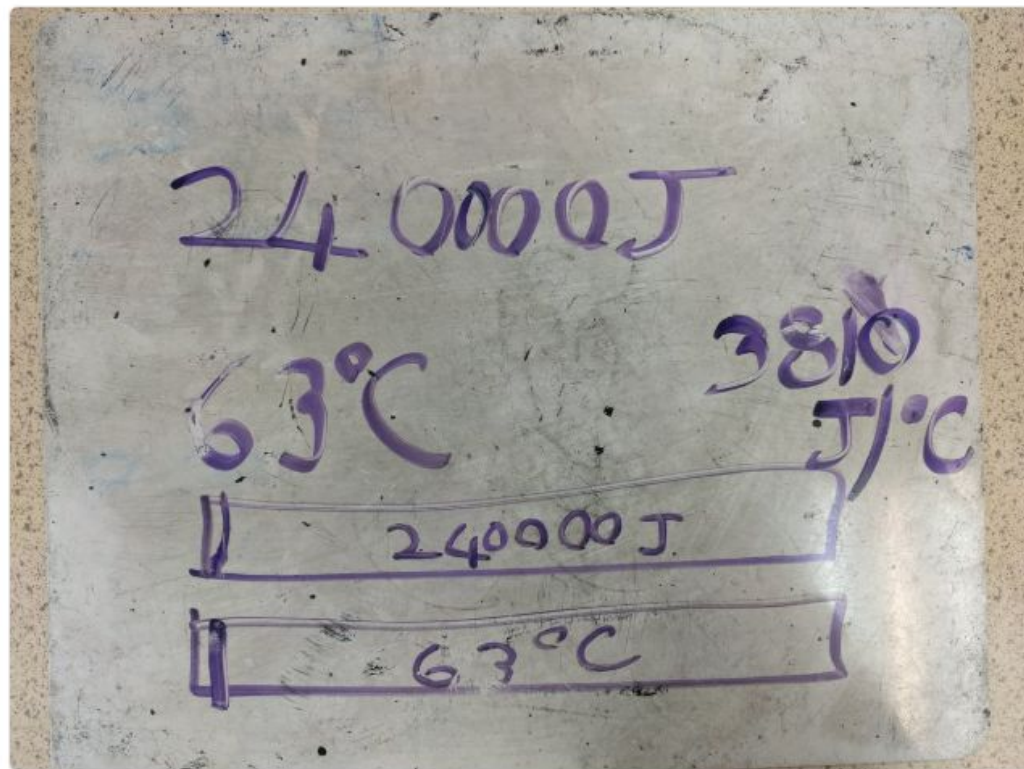 240000J
63°C
3810
J/°C
240000J.
63°C